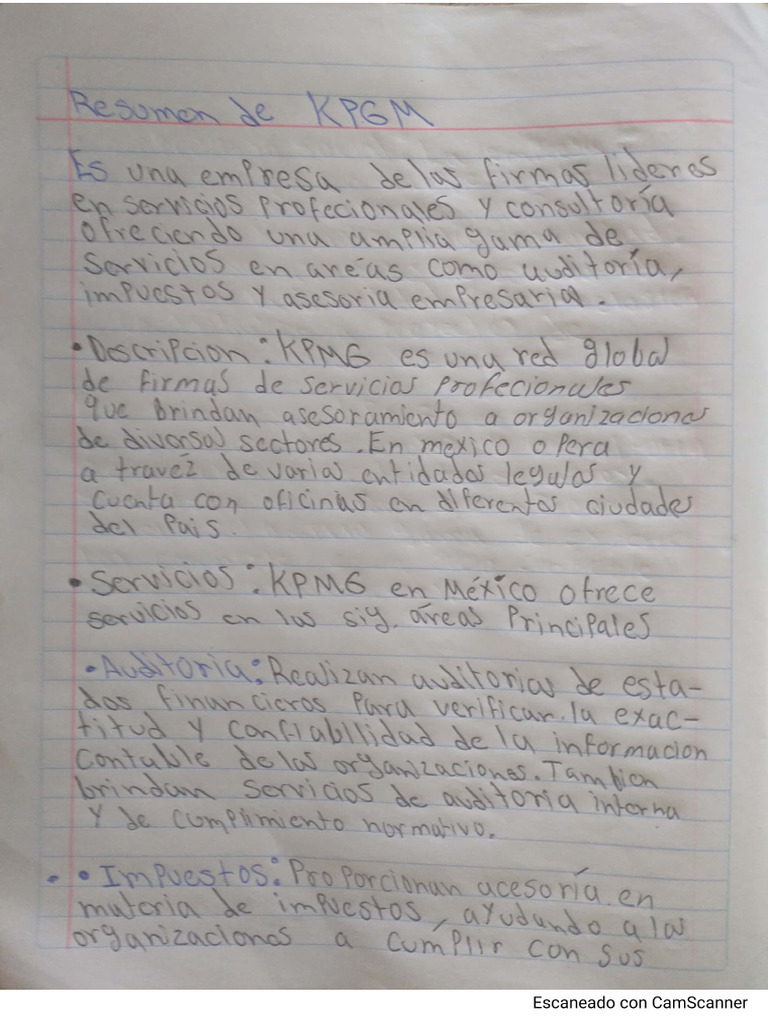 Resumen de KPGM
Es una empresa de las firmas lideres
en servicios profecionales y consultoría
ofreciendo una amplia gama de
servicios en aréas como auditoría,
impuestos y asesoria empresarial.
• Descripcion: KPMG es una red global
de firmas de servicios profecionales
que brindan asesoramiento a organizaciones
de diversos sectores. En mexico opera
a travez de varias entidades legales y
cuenta con oficinas en diferentes ciudades
del Pais.
• Servicios: KPMG en México ofrece
servicios en las sig. áreas Principales
• Auditoria: Realizan auditorias de esta-
dos financieros para verificar la exac-
titud y confiabilidad de la informacion
contable de las organizaciones. Tambien
brindan servicios de auditoria interna
y de cumplimiento normativo.
• • Impuestos: Proporcionan acesoría en
materia de impuestos, ayudando a las
organizaciones a cumplir con sus
Escaneado con CamScanner